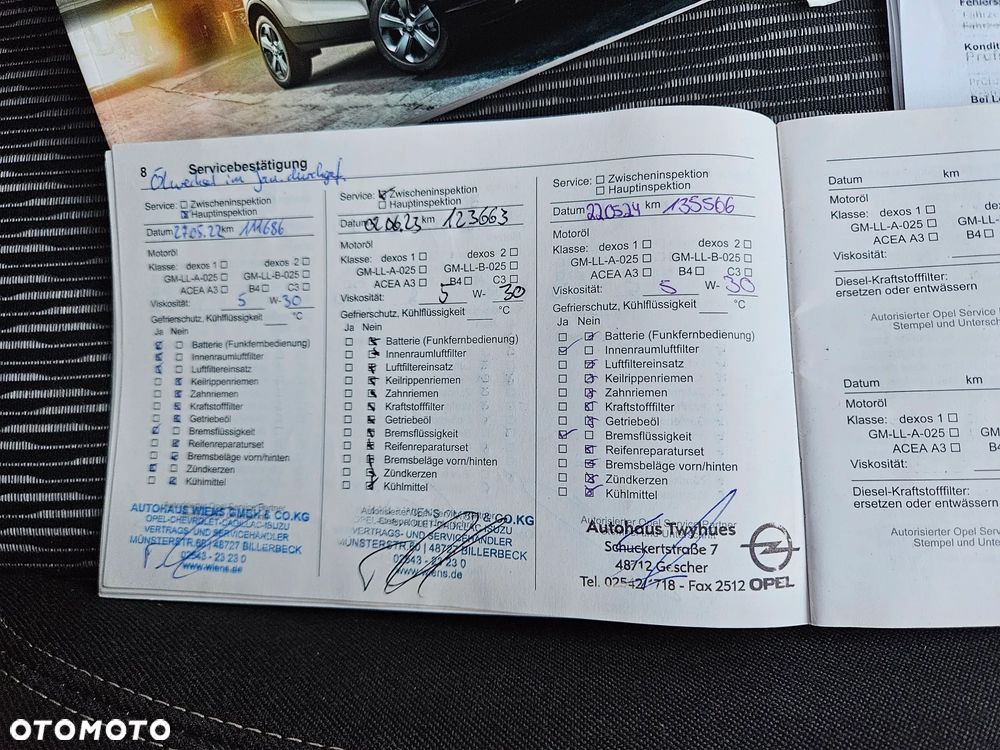 Fehlers
Fahrze
Kondit
Prüfs
Bei L
8 Servicebestätigung
Ölwechsel im Jan. durchgef.
Service: Zwischeninspektion
Hauptinspektion
Datum 27.05.22 km 111686
Motoröl
Klasse: dexos 1 dexos 2
GM-LL-A-025 GM-LL-B-025
ACEA A3 B4 C3
Viskosität: 5 W- 30
Gefrierschutz, Kühlflüssigkeit °C
Ja Nein
Batterie (Funkfernbedienung)
Innenraumluftfilter
Luftfiltereinsatz
Keilrippenriemen
Zahnriemen
Kraftstofffilter
Getriebeöl
Bremsflüssigkeit
Reifenreparaturset
Bremsbeläge vorn/hinten
Zündkerzen
Kühlmittel
AUTOHAUS WIENS GMBH & CO.KG
OPEL-CHEVROLET-CADILLAC-ISUZU
VERTRAGS- UND SERVICEHÄNDLER
MÜNSTERSTR.80 | 48727 BILLERBECK
02543 - 23 23 0
www.wiens.de
Service: Zwischeninspektion
Hauptinspektion
Datum 02.06.23 km 123663
Motoröl
Klasse: dexos 1 dexos 2
GM-LL-A-025 GM-LL-B-025
ACEA A3 B4 C3
Viskosität: 5 W- 30
Gefrierschutz, Kühlflüssigkeit °C
Ja Nein
Batterie (Funkfernbedienung)
Innenraumluftfilter
Luftfiltereinsatz
Keilrippenriemen
Zahnriemen
Kraftstofffilter
Getriebeöl
Bremsflüssigkeit
Reifenreparaturset
Bremsbeläge vorn/hinten
Zündkerzen
Kühlmittel
WIENS GMBH & CO.KG
CHEVROLET-CADILLAC-ISUZU
VERTRAGS- UND SERVICEHÄNDLER
MÜNSTERSTR.80 | 48727 BILLERBECK
02543 - 23 23 0
www.wiens.de
Service: Zwischeninspektion
Hauptinspektion
Datum 220524 km 135566
Motoröl
Klasse: dexos 1 dexos 2
GM-LL-A-025 GM-LL-B-025
ACEA A3 B4 C3
Viskosität: 5 W- 30
Gefrierschutz, Kühlflüssigkeit °C
Ja Nein
Batterie (Funkfernbedienung)
Innenraumluftfilter
Luftfiltereinsatz
Keilrippenriemen
Zahnriemen
Kraftstofffilter
Getriebeöl
Bremsflüssigkeit
Reifenreparaturset
Bremsbeläge vorn/hinten
Zündkerzen
Kühlmittel
Autorisierter Opel Service Partner
Autohaus Twyhues
Schuckertstraße 7
48712 Gescher
Fax 2512 OPEL
Datum km
Motoröl
Klasse: dexos 1
GM-LL-A-025 GM-L
ACEA A3 B4
Viskosität:
Diesel-Kraftstofffilter:
ersetzen oder entwässern
Autorisierter Opel Service
Stempel und Untersch
Datum km
Motoröl
Klasse: dexos 1
GM-LL-A-025 GM-LL
ACEA A3 B4
Viskosität:
Diesel-Kraftstofffilter:
ersetzen oder entwässern
Autorisierter Opel Service
Stempel und Unters
OTOMOTO